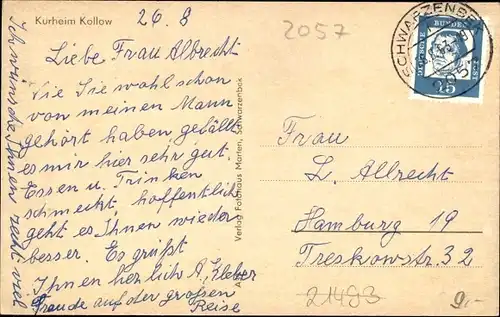 Kurheim Kollow
26. 8
2057
Liebe Frau Albrecht
Wie Sie wohl schon
von meinen Mann
gehört haben gefällt
es mir hier sehr gut.
Essen u. Trinken
schmeckt, hoffentlich
geht es Ihnen wieder
besser. Es grüßt
Ihnen herzlich A. Kleber
Freude auf der großen
Reise
Ich wünsche Ihnen recht viel
Verlag Fotohaus Marten, Schwarzenbek
SCHWARZENBEK
DEUTSCHE BUNDESPOST
15
Frau
L. Albrecht
Hamburg 19
Treskowstr. 32
21493
9,-